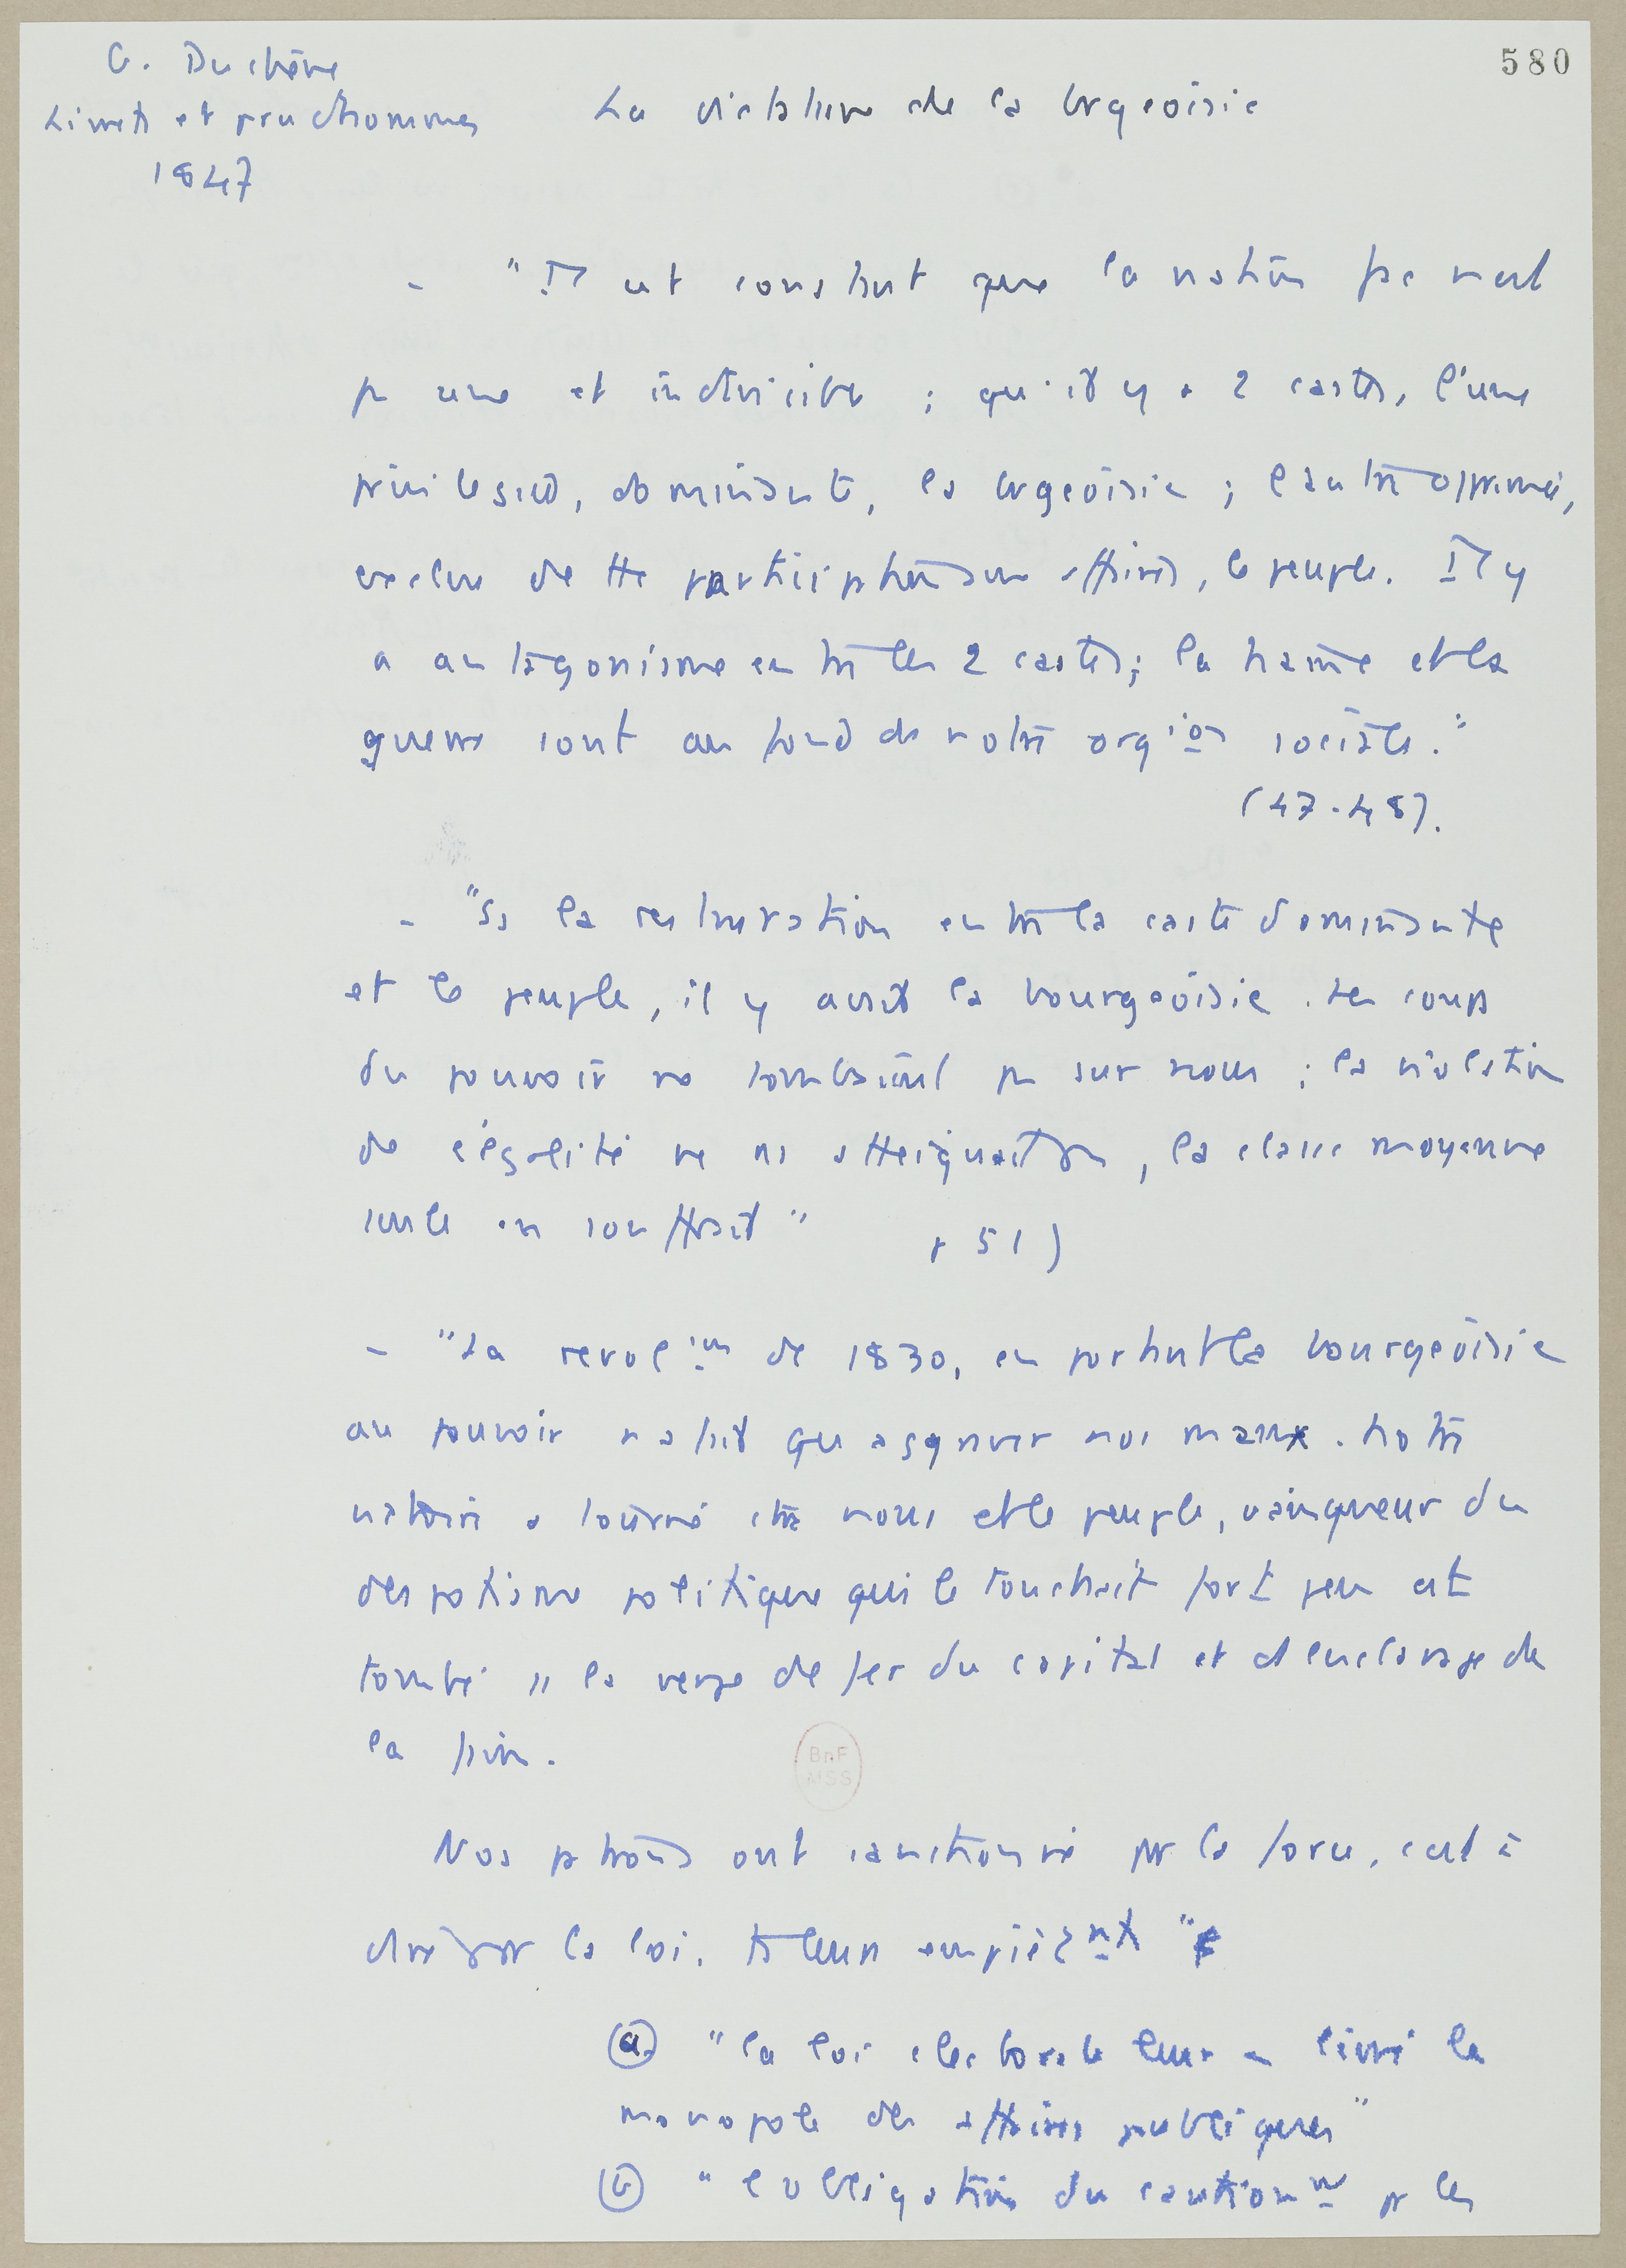 580
G. Duchêne
Livrets et prudhommes
1847
La dictature de la brgeoisie
- "Il est constant que la nation fse n'est
p une et indivisible ; qu'il y a 2 castes, l'une
privilegiée, dominante, la brgeoisie ; l'autre opprimée,
exclue de tte participation aux affaires, le peuple. Il y
a antagonisme entre les 2 castes ; la haine et la
guerre sont au fond de notre orgion sociale."
(47-48).
- "Ss la restauration entre la caste dominante
et le peuple, il y avait la bourgeoisie. Les coups
du pouvoir ne tombaient p sur nous ; la violation
de l'égalité ne ns atteignait pas, la classe moyenne
seule en souffrait" p 51)
- "La revolion de 1830, en portant la bourgeoisie
au pouvoir n'a fait qu'aggraver nos maux. Notre
victoire a tourné ctre nous et le peuple, vainqueur du
despotisme politique qui le touchait fort peu est
tombé ss la verge de fer du capital et l'esclavage de
la faim.
Nos patrons ont sanctionné par la force, c'est à
dire par la loi, ts leurs empiètnts "
(a) "la loi electorale leur a livré le
monopole des affaires publiques"
(b) "l'obligation du cautionnt pr les
BnF
MSS